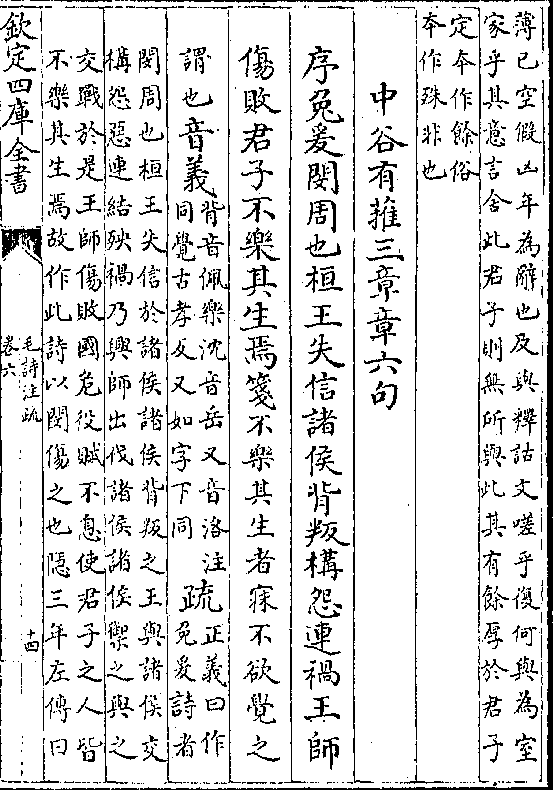 薄已空假凶年為辭也及與釋詁文嗟乎復何與為室
家乎其意言舍此君子則無所與此其有餘厚於君子
定本作餘俗
本作殊非也
中谷有蓷三章章六句
序兔爰閔周也桓王失信諸侯背叛構怨連禍王師
傷敗君子不樂其生焉箋不樂其生者寐不欲覺之
謂也音義背音佩樂沈音岳又音洛注
同覺古孝反又如字下同疏正義曰作
兔爰詩者
閔周也桓王失信於諸侯諸侯背叛之王與諸侯交
構怨惡連結殃禍乃興師出伐諸侯諸侯禦之與之
交戰於是王師傷敗國危役賦不息使君子之人皆
不樂其生焉故作此詩以閔傷之也隱三年左傳曰
欽定四庫全書
毛詩注疏
卷六
十四